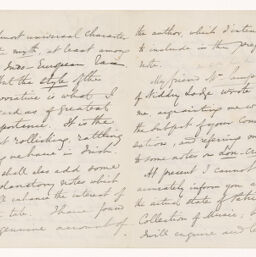 almost universal character
the myth, at least among
Indo-European
But the style of the
narrative is what I
regard as of greatest
importance. It is the
most rollicking, rattling
we have in Irish
shall also add some
explanatory notes which
will enhance the interest of
the tale. I have found
genuine account of
the author, which I intend
to include in the
note.
My friend Mr
of Niddry Lodge wrote
me, acquainting me with
the subject of your
sations, and referring me
to some notes on
At present I cannot
accurately inform you as
the actual state of
Collection of Music,
I will enquire and